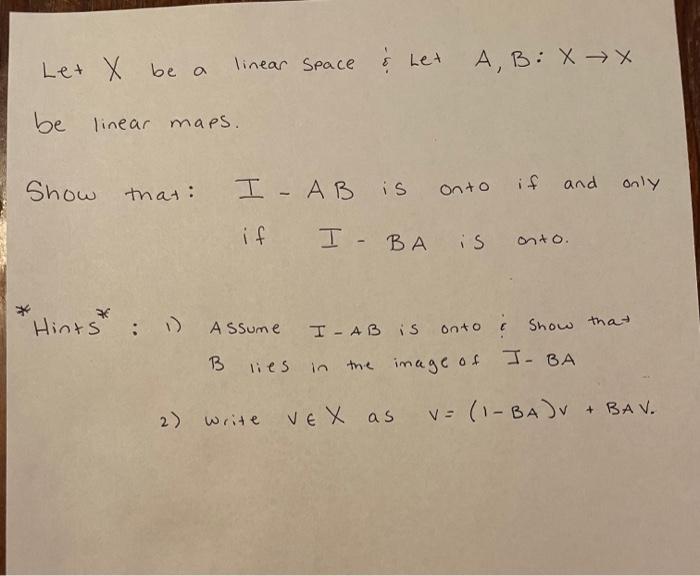 Let X be a linear space & Let A, B: X → X
be linear maps.
Show that: I - AB is onto if and only
if I - BA is onto.
*Hints* : 1) Assume I - AB is onto & Show that
B lies in the image of I - BA
2) write v ∈ X as v = (1 - BA)v + BAV.